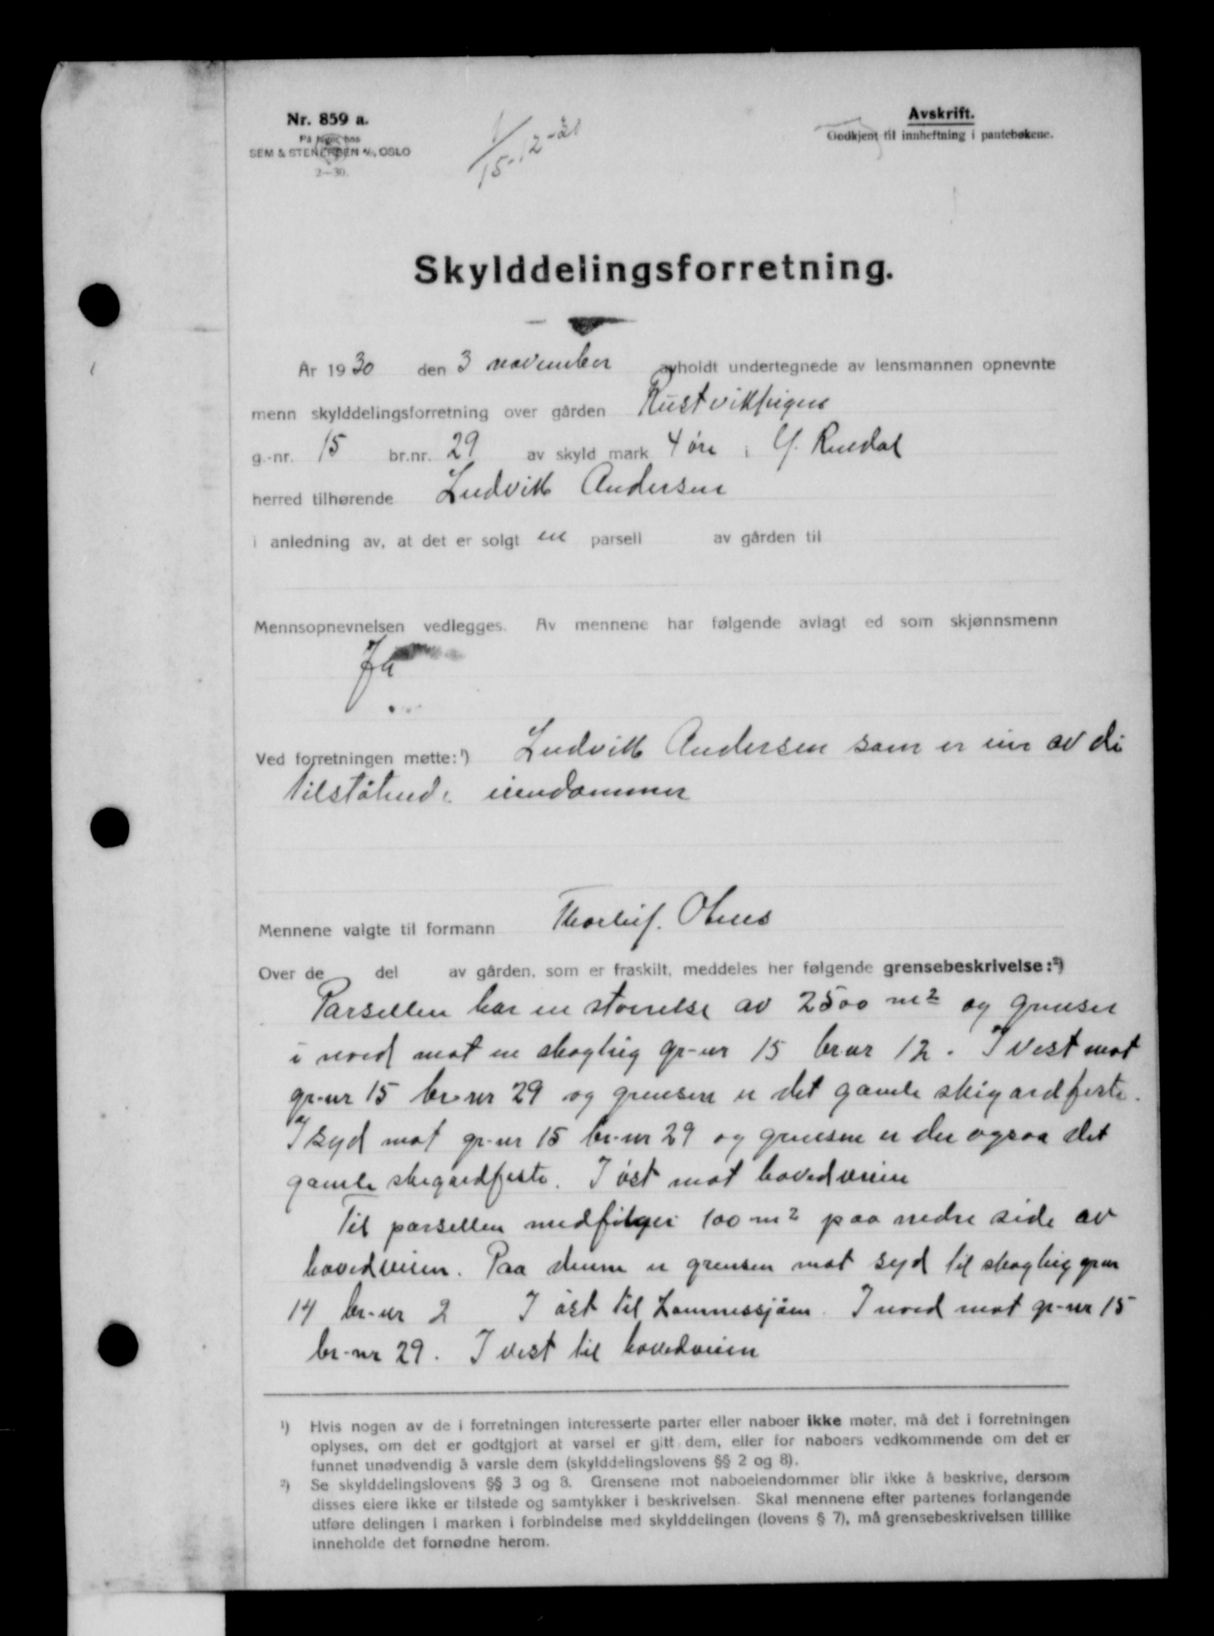 Nr. 859 a.
På lager hos
SEM & STENERSEN A/S, OSLO
2—30.
1/15-12-30
Avskrift.
Godkjent til innheftning i pantebøkene.
Skylddelingsforretning.
År 1930 den 3 november avholdt undertegnede av lensmannen opnevnte
menn skylddelingsforretning over gården
g.-nr. 15 br.nr. 29 av skyld mark 4 øre i Y. Rendal
herred tilhørende Ludvik Andersen
i anledning av, at det er solgt en parsell av gården til
Mennsopnevnelsen vedlegges. Av mennene har følgende avlagt ed som skjønnsmenn
Ja
Ved forretningen møtte:¹) Ludvik Andersen som er eier av de
tilstøtende eiendommer
Mennene valgte til formann Thorleif
Over de del av gården, som er fraskilt, meddeles her følgende grensebeskrivelse:²)
Parsellen har en størrelse av 2500 m² og grenser
i nord mot en skogteig gr-nr 15 br nr 12. I vest mot
gr-nr 15 br-nr 29 og grensen er det gamle skigardfeste.
I syd mot gr-nr 15 br-nr 29 og grensen er der ogsaa det
gamle skigardfeste. I øst mot hovedveien
Til parsellen medfølger 100 m² paa nedre side av
hovedveien. Paa denne er grensen mot syd til skogteig grnr
14 br-nr 2 I øst til Lomnessjøen. I nord mot gr-nr 15
br-nr 29. I vest til hovedveien
¹) Hvis nogen av de i forretningen interesserte parter eller naboer ikke møter, må det i forretningen
oplyses, om det er godtgjort at varsel er gitt dem, eller for naboers vedkommende om det er
funnet unødvendig å varsle dem (skylddelingslovens §§ 2 og 8).
²) Se skylddelingslovens §§ 3 og 8. Grensene mot naboeiendommer blir ikke å beskrive, dersom
disses eiere ikke er tilstede og samtykker i beskrivelsen. Skal mennene efter partenes forlangende
utføre delingen i marken i forbindelse med skylddelingen (lovens § 7), må grensebeskrivelsen tillike
inneholde det fornødne herom.